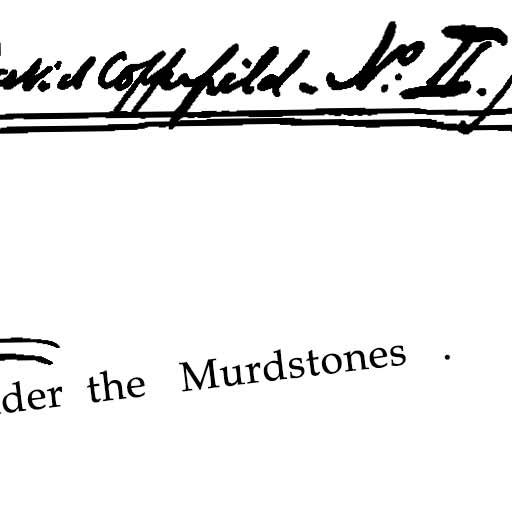 Copperfield - No. II.
the Murdstones .